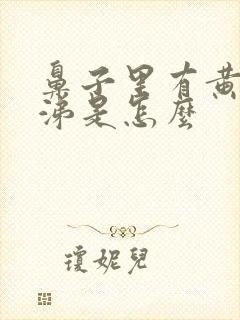 鼻子里有黄
涕是怎麼
瓊妮兒